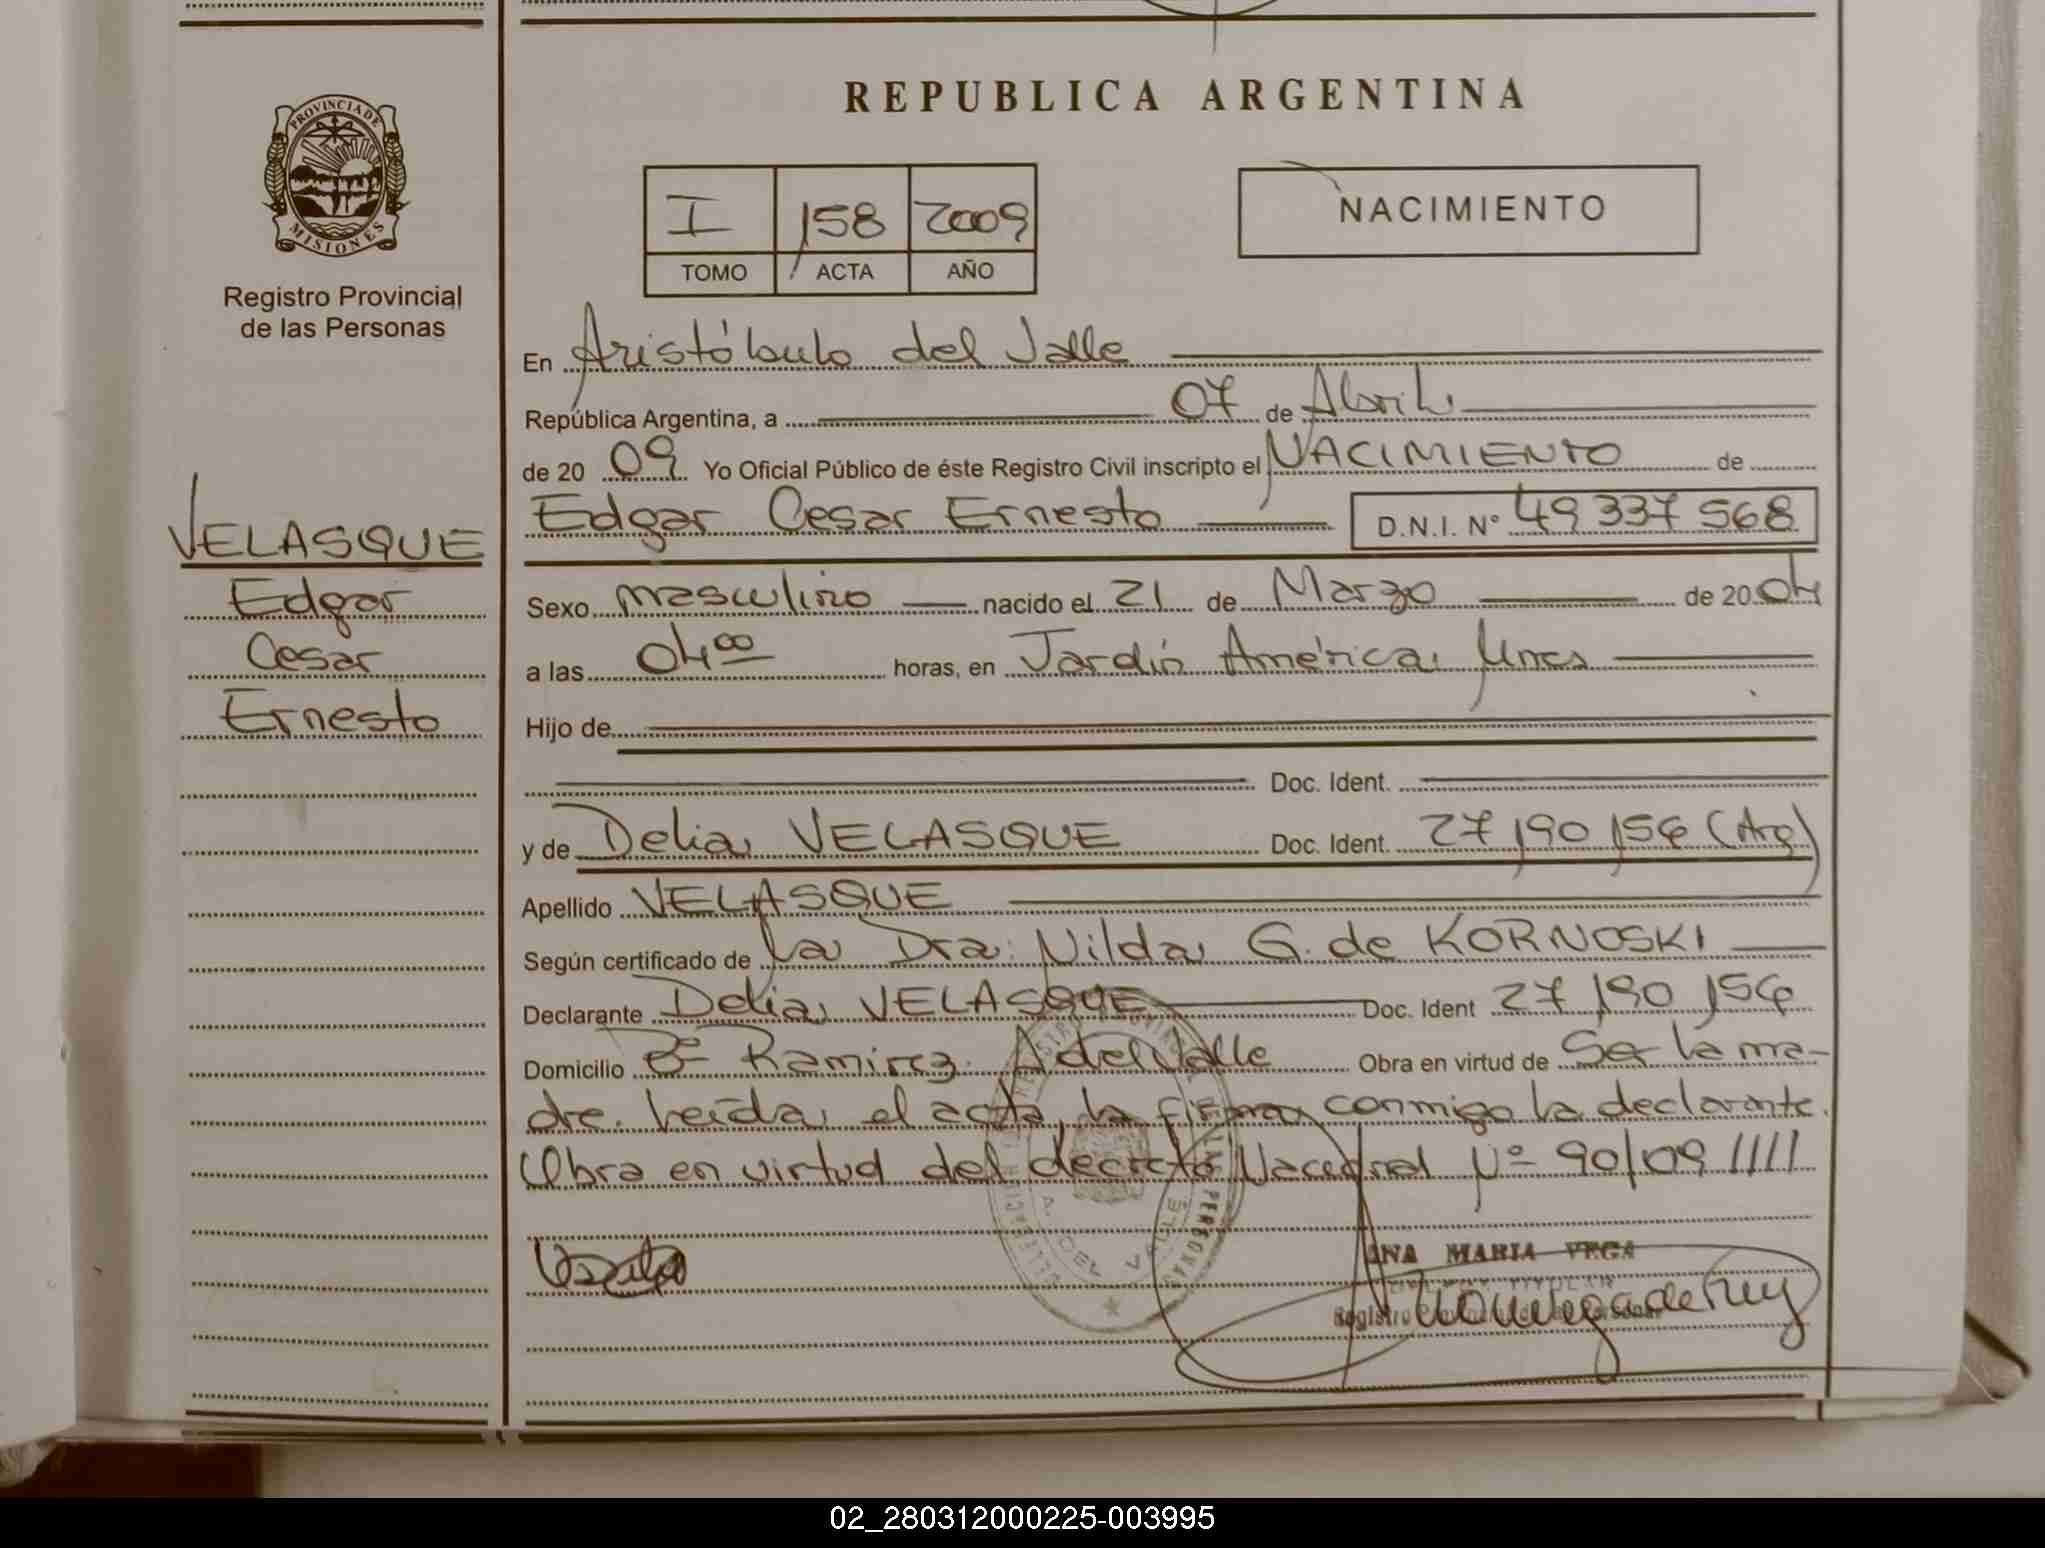 REPUBLICA ARGENTINA
PROVINCIA DE
MISIONES
Registro Provincial
de las Personas
I 158 2009
TOMO ACTA AÑO
NACIMIENTO
En Aristóbulo del Valle
República Argentina, a 07 de Abril
de 20 09 Yo Oficial Público de éste Registro Civil inscripto el NACIMIENTO de
Edgar Cesar Ernesto D.N.I. N° 49 337 568
VELASQUE
Edgar
Cesar
Ernesto
Sexo masculino nacido el 21 de Marzo de 20 04
a las 04 00 horas, en Jardín América, Mnes
Hijo de
Doc. Ident.
y de Delia VELASQUE Doc. Ident. 27,190,156 (Arg)
Apellido VELASQUE
Según certificado de la Dra. Nilda G. de KORNOSKI
Declarante Delia VELASQUE Doc. Ident 27,190,156
Domicilio B° Ramirez. A del Valle Obra en virtud de Ser la ma-
dre. Leída el acta, la firma conmigo la declarante.
Obra en virtud del decreto Nacional N° 90/09 ////
A. DEL VALLE
ANA MARIA VEGA
02_280312000225-003995